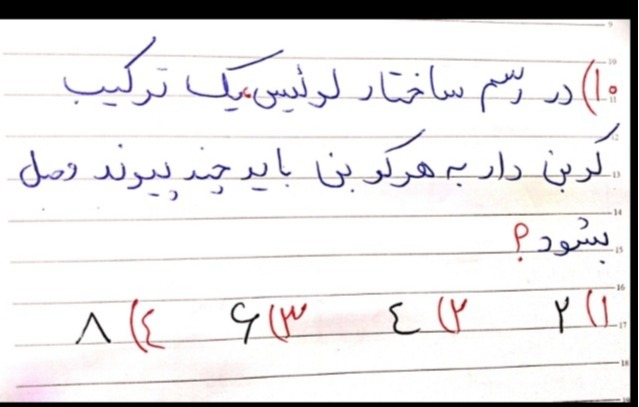 ۱۰) در رسم ساختار لوئیس یک ترکیب
کربن دار به هر کربن باید چند پیوند وصل
بشود ؟
۱) ۲ ۲) ٤ ۳) ۶ ٤) ۸